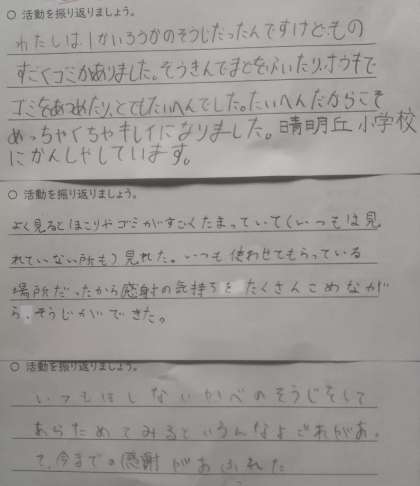 ○ 活動を振り返りましょう。
わたしは、1かいろうかのそうじだったんですけど、もの
すごくゴミがありました。ぞうきんでまどをふいたり、ホウキで
ゴミをあつめたり、とてもたいへんでした。たいへんだからこそ
めっちゃくちゃキレイになりました。晴明丘小学校
にかんしゃしています。
○ 活動を振り返りましょう。
よく見るとほこりやゴミがすごくたまっていて(いつもは見
れていない所も)見れた。いつも使わせてもらっている
場所だったから感射の気持ちをたくさんこめなが
ら、そうじができた。
○ 活動を振り返りましょう。
いつもはしないかべのそうじをして
あらためてみるといろんなよごれがあっ
て、今までの感謝があふれた